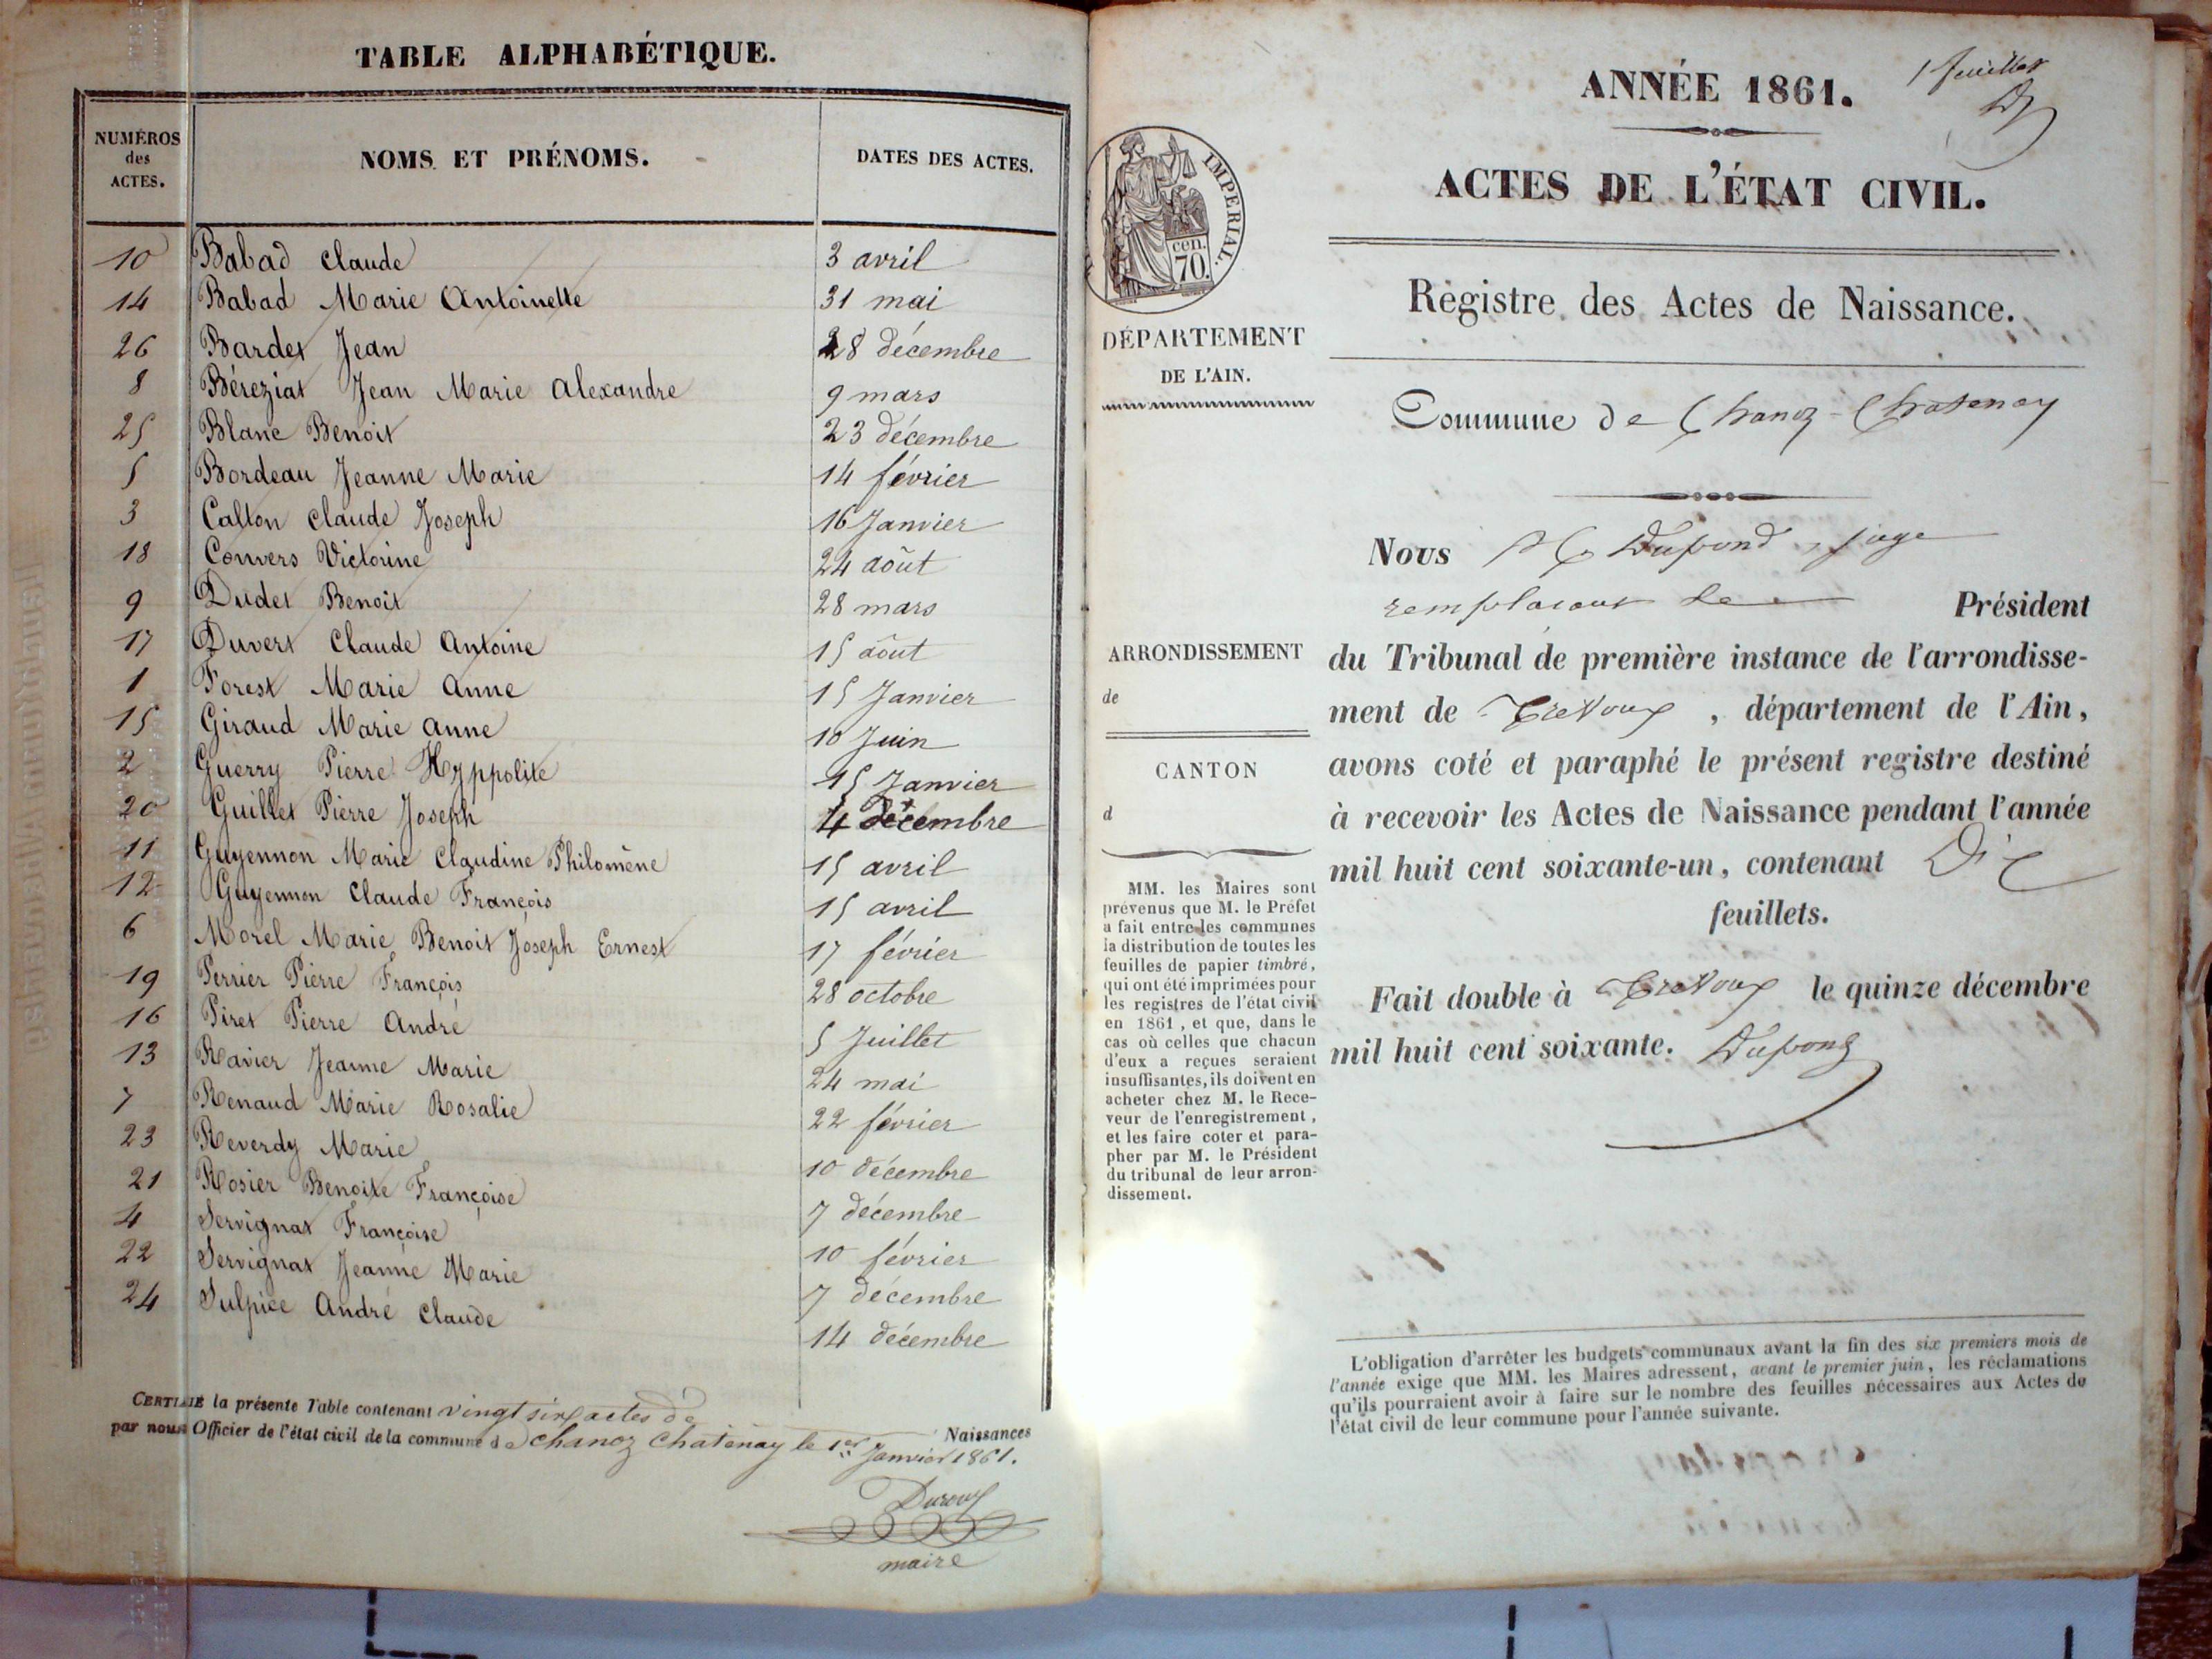 TABLE ALPHABÉTIQUE.
NUMÉROS
des
ACTES.
NOMS ET PRÉNOMS.
DATES DES ACTES.
10 Babad Claude 3 avril
14 Babad Marie Antoinette 31 mai
26 Bardet Jean 28 décembre
8 Béreziat Jean Marie Alexandre 9 mars
25 Blanc Benoit 23 décembre
5 Bordeau Jeanne Marie 14 février
3 Calton Claude Joseph 16 Janvier
18 Convers Victorine 24 aôut
9 Dudet Benoit 28 mars
17 Duvert Claude Antoine 15 aôut
1 Forest Marie Anne 15 Janvier
15 Giraud Marie Anne 10 Juin
2 Guerry Pierre Hyppolite 15 Janvier
20 Guillet Pierre Joseph 4 décembre
11 Guyennon Marie Claudine Philomène 15 avril
12 Guyennon Claude François 15 avril
6 Morel Marie Benoit Joseph Ernest 17 février
19 Perrier Pierre François 28 octobre
16 Piret Pierre André 5 Juillet
13 Ravier Jeanne Marie 24 mai
7 Renaud Marie Rosalie 22 février
23 Reverdy Marie 10 décembre
21 Rosier Benoite Françoise 7 décembre
4 Servignat Françoise 10 février
22 Servignat Jeanne Marie 7 décembre
24 Sulpice André Claude 14 décembre
CERTIFIÉ la présente Table contenant vingt six actes de Naissances
par nous Officier de l'état civil de la commune de Chanoz Chatenay le 1er Janvier 1861.
Duroux
maire
1 feuillet
ANNÉE 1861.
ACTES DE L'ÉTAT CIVIL.
IMPERIAL.
cen.
70.
Registre des Actes de Naissance.
DÉPARTEMENT
DE L'AIN.
Commune de Chanoz-Chatenay
Nous Dupond, juge
remplacant le Président
ARRONDISSEMENT
de
CANTON
d
du Tribunal de première instance de l'arrondisse-
ment de Trevoux, département de l'Ain,
avons coté et paraphé le présent registre destiné
à recevoir les Actes de Naissance pendant l'année
mil huit cent soixante-un, contenant Dix
feuillets.
Fait double à Trevoux le quinze décembre
mil huit cent soixante. Dupond
MM. les Maires sont
prévenus que M. le Préfet
a fait entre les communes
la distribution de toutes les
feuilles de papier timbré,
qui ont été imprimées pour
les registres de l'état civil
en 1861, et que, dans le
cas où celles que chacun
d'eux a reçues seraient
insuffisantes, ils doivent en
acheter chez M. le Rece-
veur de l'enregistrement,
et les faire coter et para-
pher par M. le Président
du tribunal de leur arron-
dissement.
L'obligation d'arrêter les budgets communaux avant la fin des six premiers mois de
l'année exige que MM. les Maires adressent, avant le premier juin, les réclamations
qu'ils pourraient avoir à faire sur le nombre des feuilles nécessaires aux Actes de
l'état civil de leur commune pour l'année suivante.